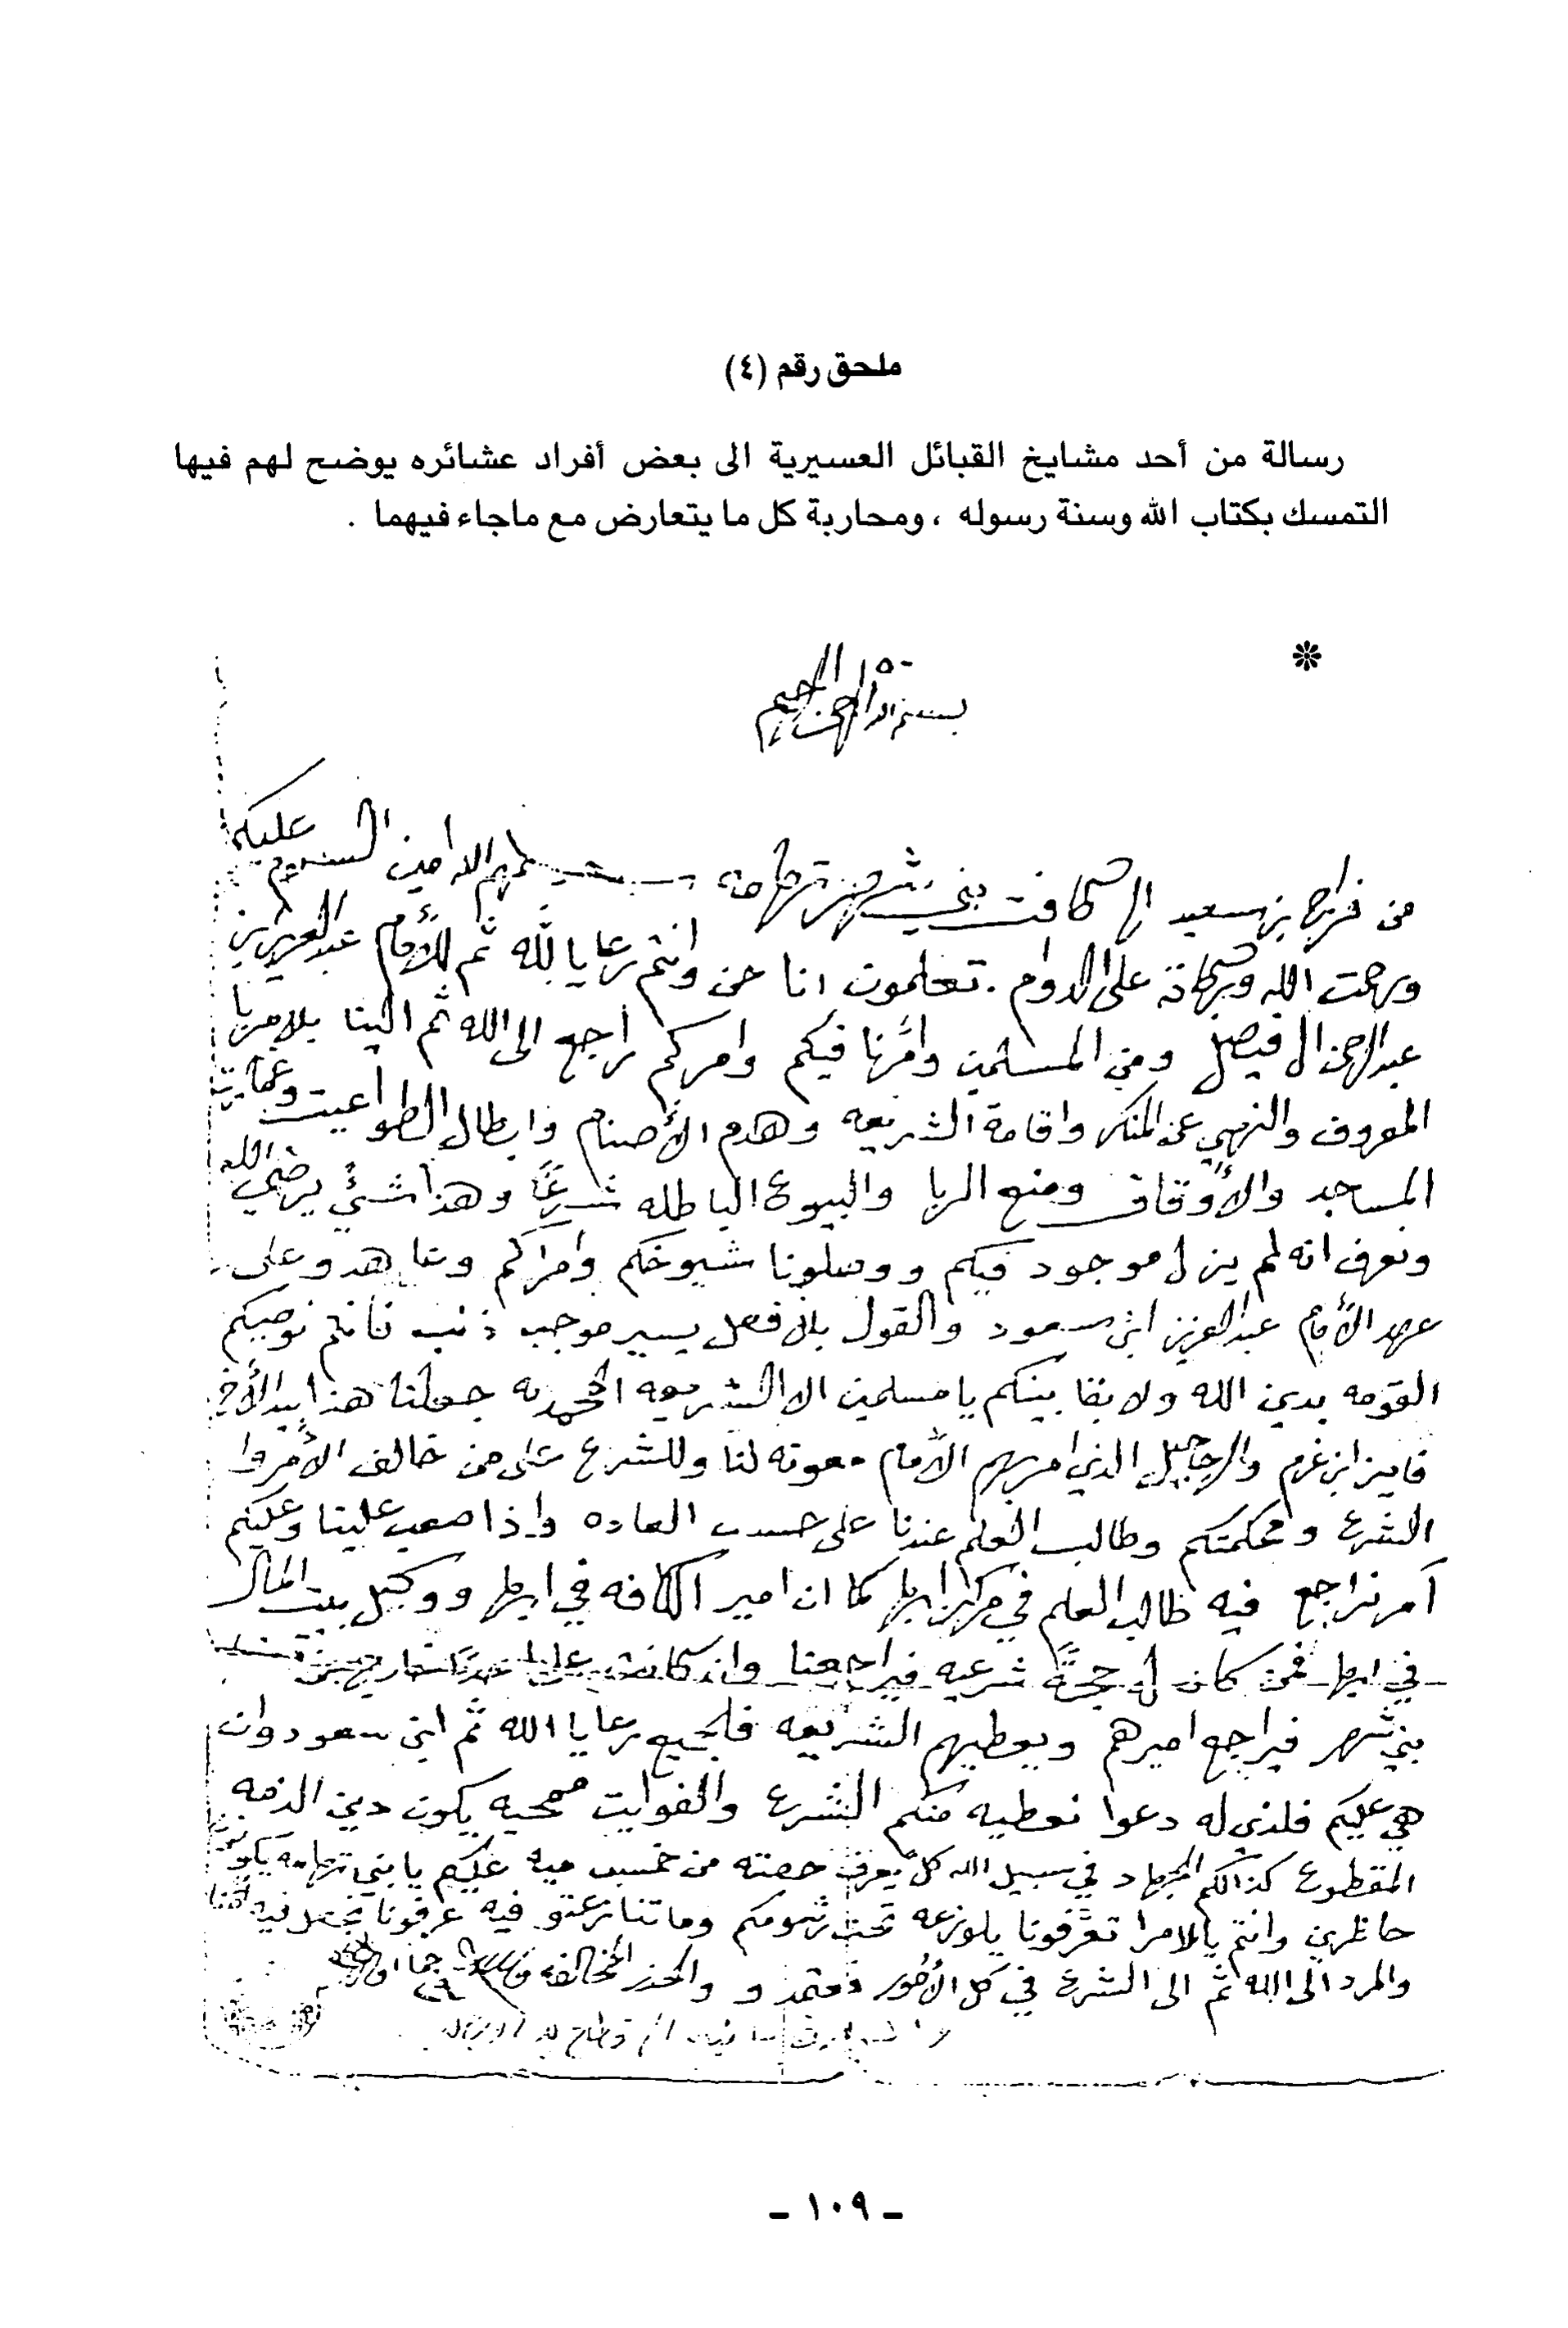 ملحق رقم (٤)
رسالة من أحد مشايخ القبائل العسيرية الى بعض أفراد عشائره يوضح لهم فيها
التمسك بكتاب الله وسنة رسوله ، ومحاربة كل ما يتعارض مع ماجاء فيهما .
*
بسم الله الرحمن الرحيم
من فراج بن سعيد الى كافت بني شهر تهامه سلمهم الله امين السلام عليكم
ورحمت الله وبركاته على الدوام . تعلمون انا حن وانتم رعايا لله ثم للأمام عبدالعزيز بن
عبدالرحمن ال فيصل ومن المسلمين وامرنا فيكم وامركم راجع الى الله ثم الينا بلامر با
المعروف والنهي عن المنكر واقامة الشريعه وهدم الأصنام وابطال الطواغيت وعمارت
المساجد والأوقاف ومنع الربا والبيوع الباطله شرعًا وهذا شئ يرضي الله
ونعرف انه لم يزل موجود فيكم ووصلونا شيوخكم وامراكم وتعاهدو على
عهد الأمام عبدالعزيز ابن سعود والقول بلا فعل يسير موجب ذنب فانتم نوصيكم
القومه بدين الله ولا بقا بينكم يا مسلمين الا الشريعه المحمديه جعلنا هذا بيد الأخ
فايز ابن غرم والرجاجيل الذي امرهم الأمام معونه لنا وللشرع على من خالف الأمر وا
الشرع ومحكمتكم وطالب العلم عندنا على حسب العاده واذا صعب علينا وعليكم
أمر نراجع فيه طالب العلم في مركز ابها كما ان امير الكافه في ابها ووكيل بيت المال
في ابها فمن كان له حجةً شرعيه فيراجعنا وان كانت على
بني شهر فيراجع اميرهم ويعطيهم الشريعه فلجميع رعايا الله ثم ابن سعود وان
هي عليكم فلذي له دعوا نعطيه منكم الشرع والفوايت ممحيه يكون دين الذمه
المقطوع كذالكم الجهاد في سبيل الله كل يعرف حصته من خمسب ميه عليكم يا بني تهامه
حاظرين وانتم يالامرا تعرفونا بلوزعه تحت رسومكم وما تنازعتو فيه عرفونا
والمرد الى الله ثم الى الشرع في كل الأمور فعتمدو والحذر المخالفه
- ١٠٩ -